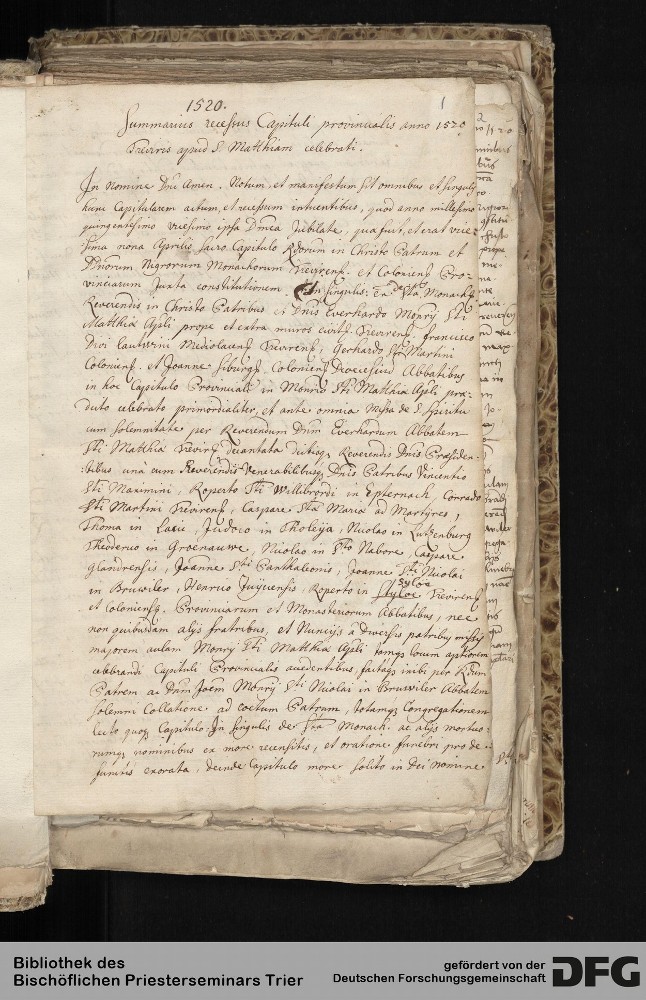 1520.
1
Summarius recessus Capituli provincialis anno 1520
Treviris apud S. Matthiam celebrati.
In nomine Dni Amen. Notum et manifestum sit omnibus et singulis
hunc Capitularem actum, et recessum intuentibus, quod anno millesimo
quingentesimo vicesimo ipsa Dnica Jubilate, qua fuit, et erat vice-
sima nona Aprilis, sacro Capitulo Rdorum in Christo Patrum et
Dnorum Nigrorum Monachorum Trevirens. et Coloniens Pro-
vinciarum juxta constitutionem. In singulis:
Reverendis in Christo Patribus et Dnis Everhardo Monrij Sti
Matthiæ Apli prope et extra muros civit Trevirens, francisco
Divi Lautwini Mediolacens Trevirens, Gerhardo Sti Martini
Coloniens, et Joanne Siburgs Coloniens Dioecesium Abbatibus
in hoc Capitulo Provinciali in Monrio Sti Matthiæ Apli præ-
dicto celebrato primordialiter, et ante omnia Missa de S. Spiritu
cum solemnitate per Reverendum Dnm Everhardum Abbatem
Sti Matthiæ Trevirs decantata dictisq Reverendis Dnis Præsiden-
tibus una cum Reverendis Venerabilibusq Dnis Patribus Vincentio
Sti Maximini, Roperto Sti Willibrordi in Epternach, Conrado
Sti Martini Trevirens, Caspare Sta Maria ad Martyres
Thoma in Lacu, Judoco in Tholeya, Nicolao in Lutzenburg
Theoderico in Groenauwe, Nicolao in Sto Nabore, Caspare
Glandriensis, Joanne Sti Panthaleonis, Joanne Sti Nicolai
in Bruwiler, Henrico Tuijtiensis, Roperto in Styloe Trevirens
Syloe
et Coloniensq. Provinciarum et Monasteriorum Abbatibus, nec
non quibusdam alijs fratribus, et Nuncijs a diversis patribus missis
majorem aulam Monrij Sti Matthiæ Apli tamq locum aptiorem
celebrandi Capituli Provincialis accedentibus, factaq inibi per Rdum
Patrem ac Dnm Joem Monrij Sti Nicolai in Bruwiler Abbatem
solemni Collatione ad coetum Patrum, totamq Congregationem
lecto quoq Capitulo: In singulis de sta Monach. ac alijs mortuo-
rumq nominibus ex more recensitis, et oratione funebri pro de-
functis exorata, deinde Capitulo more solito in Dei nomine
Bibliothek des
Bischöflichen Priesterseminars Trier
gefördert von der
Deutschen Forschungsgemeinschaft
DFG